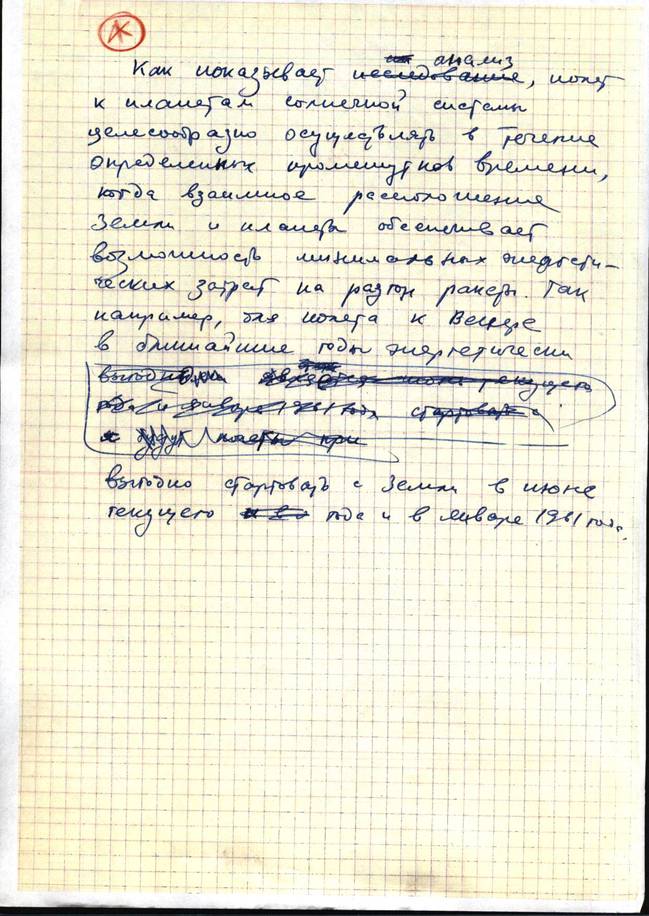 анализ
Как показывает исследование, полет
к планетам солнечной системы
целесообразно осуществлять в течение
определенных промежутков времени,
когда взаимное расположение
Земли и планеты обеспечивает
возможность минимальных энергети-
ческих затрат на разгон ракеты. Так
например, для полета к Венере
в ближайшие годы энергетически
выгодно текущего
года и январе 1961 года стартовать с
будут полеты при
выгодно стартовать с Земли в июне
текущего года и в январе 1961 года.